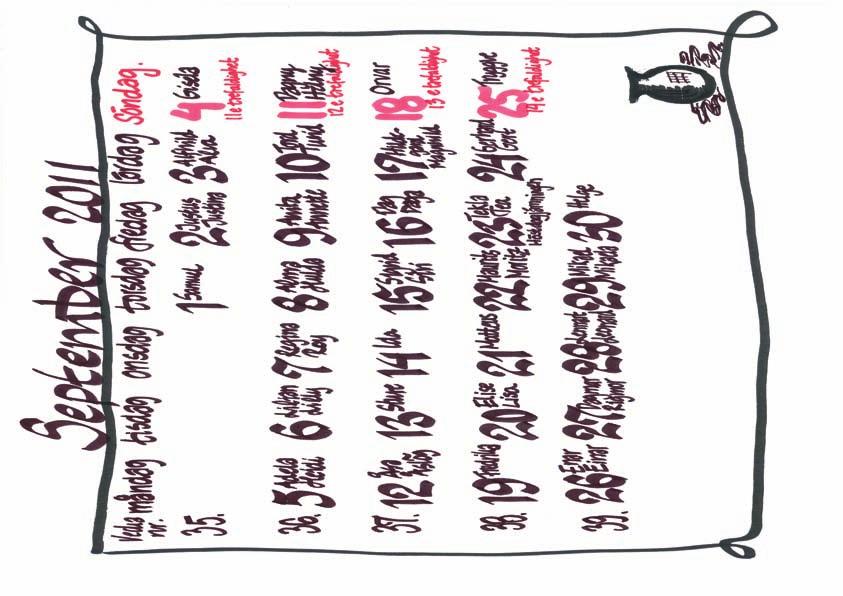 September 2011
Vecka nr. måndag tisdag onsdag torsdag fredag lördag Söndag.
35. 1 Samuel 2 Justus Justina 3 Alfhild Alva 4 Gisela
11 e trefaldighet
36. 5 Adela Heidi 6 Lilian Lilly 7 Regina Roy 8 Alma Hulda 9 Anita Annette 10 Tord Turid 11 Dagny Helny
12 e trefaldighet
37. 12 Åsa Åslög 13 Sture 14 Ida 15 Sigrid Siri 16 Dag Daga 17 Magnhild 18 Orvar
13 e trefaldighet
38. 19 Fredrika 20 Elise Lisa 21 Matteus 22 Maurits Moritz 23 Tekla Tea 24 Gerhard Gert 25 Tryggve
Höstdagjämningen 14 e trefaldighet
39. 26 Enar Einar 27 Dagmar Rigmor 28 Lennart Leonard 29 Mikael Mikaela 30 Helge